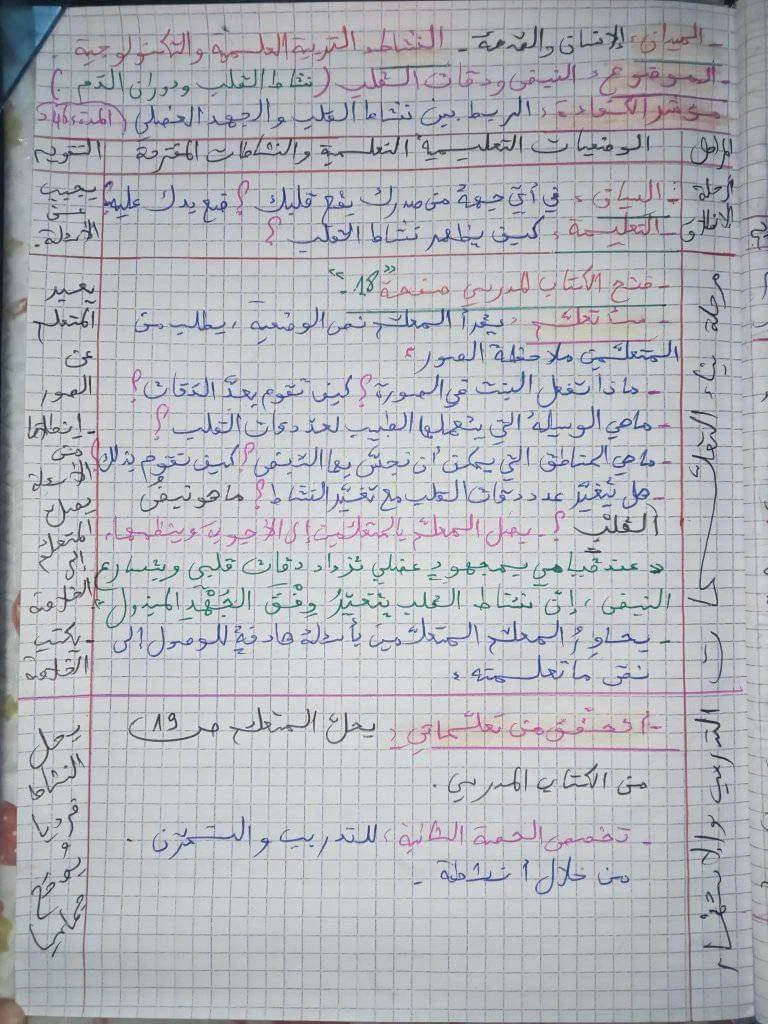 - الميدان : الإنسان والصحة - النشاط : التربية العلمية والتكنولوجية .
- الموضوع : النبض ودقات القلب ( نشاط القلب ودوران الدم . )
مؤشر الكفاءة : الربط بين نشاط القلب والجهد العضلي ( المدة : 46د
المراحل الوضعيات التعليمية التعلمية والنشاطات المقترحة التقويم
مرحلة الانطلاق
- السياق : في أيّ جهة من صدرك يقع قلبك ؟ ضع يدك عليه؟
- التعليمة : كيف يظهر نشاط القلب ؟
يجيب
عن
الأسئلة.
مرحلة بناء التعلّمات
- فتح الكتاب المدرسي صفحة "18"
- يقرأ المعلّم نص الوضعية ، يطلب من
المتعلّمين ملاحظة الصور :
- ماذا تفعل البنت في الصورة ؟ كيف تقوم بعدّ الدّقات ؟
- ماهي الوسيلة التي يستعملها الطبيب لعد دقات القلب ؟
- ماهي المناطق التي يمكن أن نجسّ بها النبض ؟ كيف تقوم بذلك؟
- هل يتغيّر عدد دقات القلب مع تغيّر النشاط ؟ ما هو نبض
القلب ؟ - يصل المعلّم بالمتعلّمين إلى الأجوبة وينظمها.
عند قيامي بمجهود عضلي تزداد دقات قلبي ويتسارع
النبض ، إنّ نشاط القلب يتغيّرُ وِفْقَ الجُهْدِ المبذول .
- يحاورُ المعلّم المتعلّمين بأسئلة هادفة للوصول إلى
نص ما تعلمته .
يعبر
المتعلم
عن
الصور
- انطلاقا
من
الأسئلة
يصل
المتعلم
إلى
الخلاصة
- يكتب
الخلاصة
التدريب والاستثمار
- أتحقّق من تعلّماتي : يحل المتعلم ص 19
من الكتاب المدرسي .
- تخصص الحصة الثانية ، للتدريب والتمرّن .
من خلال أنشطة .
يحل
النشاط
فرديا
و
يصحح
جماعيا